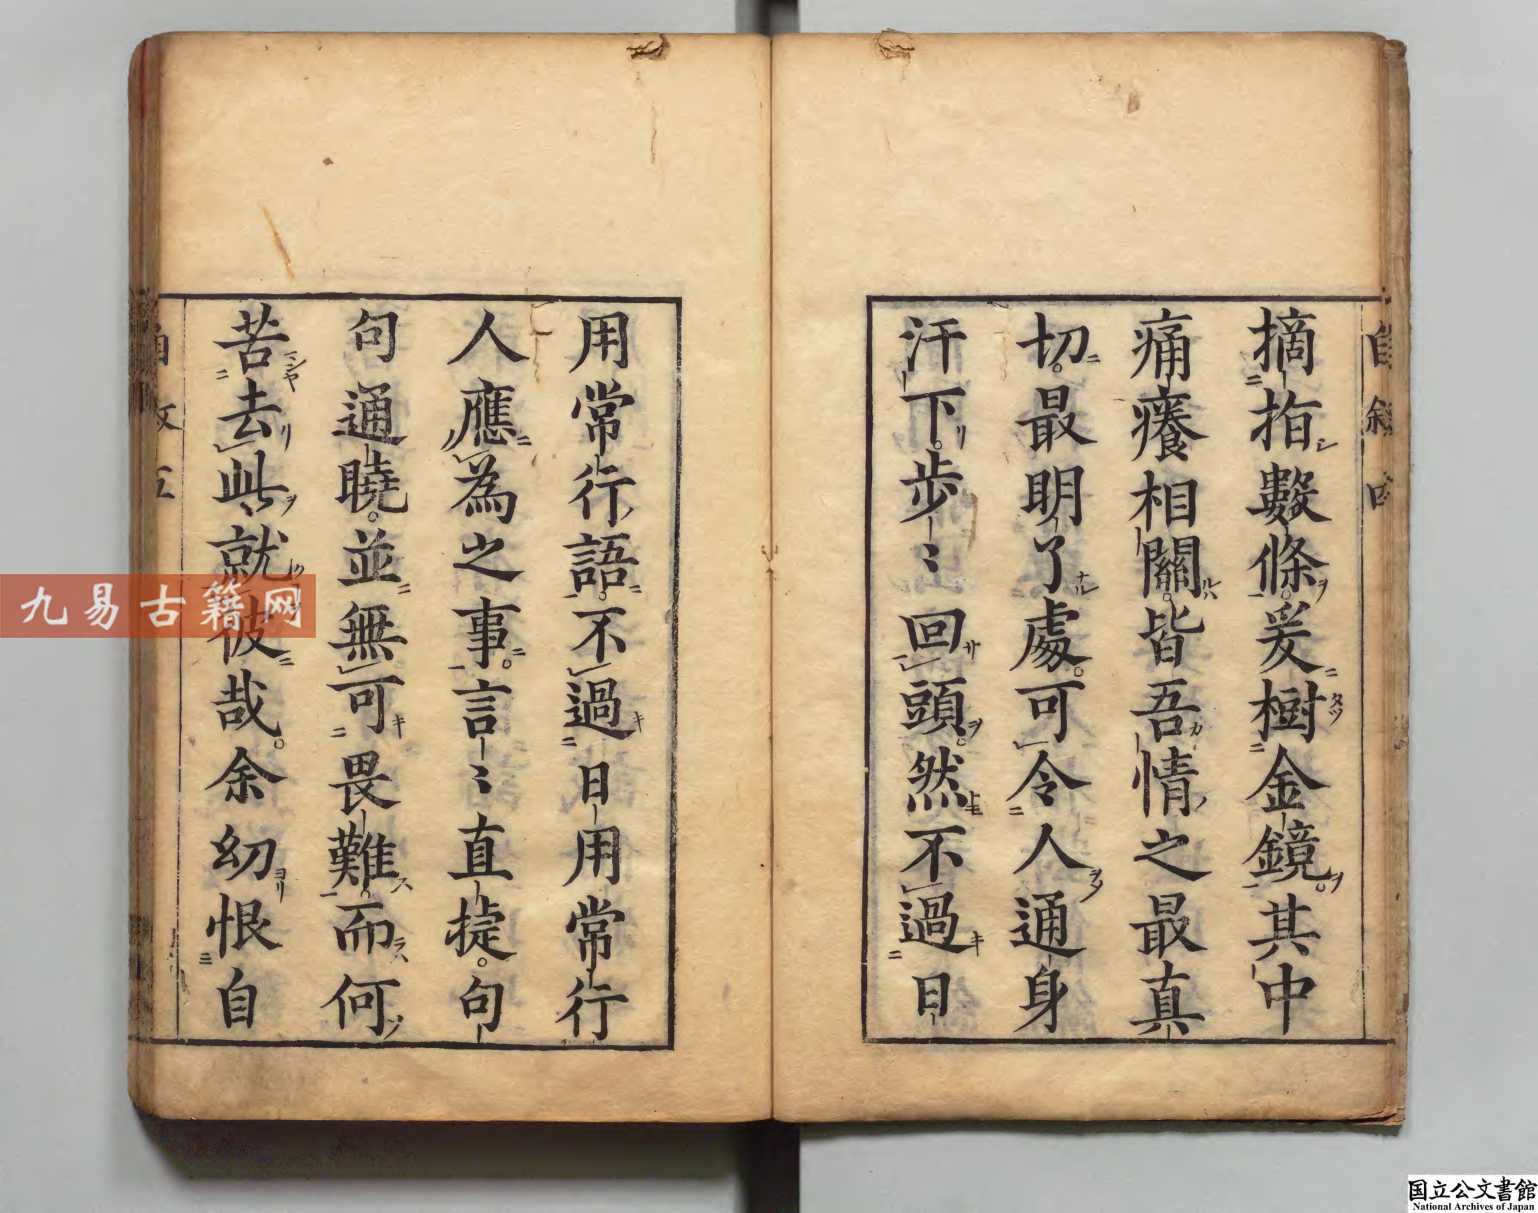 摘指數條爰樹金鏡其中
痛癢相關皆吾情之最真
切最明了處可令人通身
汗下步〻回頭然不過日
用常行語不過日用常行
人應為之事言〻直捷句
句通曉並無可畏難而何
苦去此就彼哉余幼恨自
九易古籍网
国立公文書館
National Archives of Japan